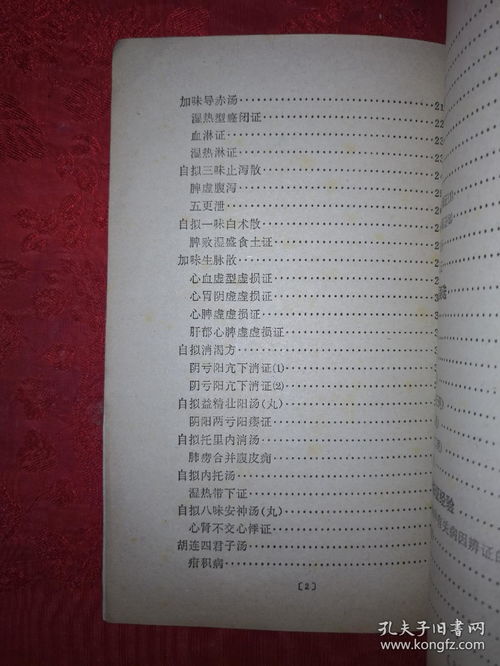 加味导赤汤……………………21
湿热型癃闭证……………………22
血淋证……………………23
湿热淋证……………………23
自拟三味止泻散……………………2
脾虚腹泻……………………2
五更泄……………………2
自拟一味白术散……………………2
脾败湿盛食土证……………………2
加味生脉散……………………2
心血虚型虚损证……………………2
心胃阴虚虚损证……………………3
心脾虚虚损证……………………3
肝郁心脾虚虚损证……………………3
自拟消渴方……………………3
阴亏阳亢下消证(1)……………………3
阴亏阳亢下消证(2)……………………3
自拟益精壮阳汤(丸)……………………3
阴阳两亏阳痿证……………………3
自拟托里内消汤……………………
肺痨合并腹皮痈……………………
自拟内托汤……………………
湿热带下证……………………
自拟八味安神汤(丸)……………………
心肾不交心悸证……………………
胡连四君子汤……………………
疳积病……………………
〔2〕
经验
失病因辨证
孔夫子旧书网
www.kongfz.com